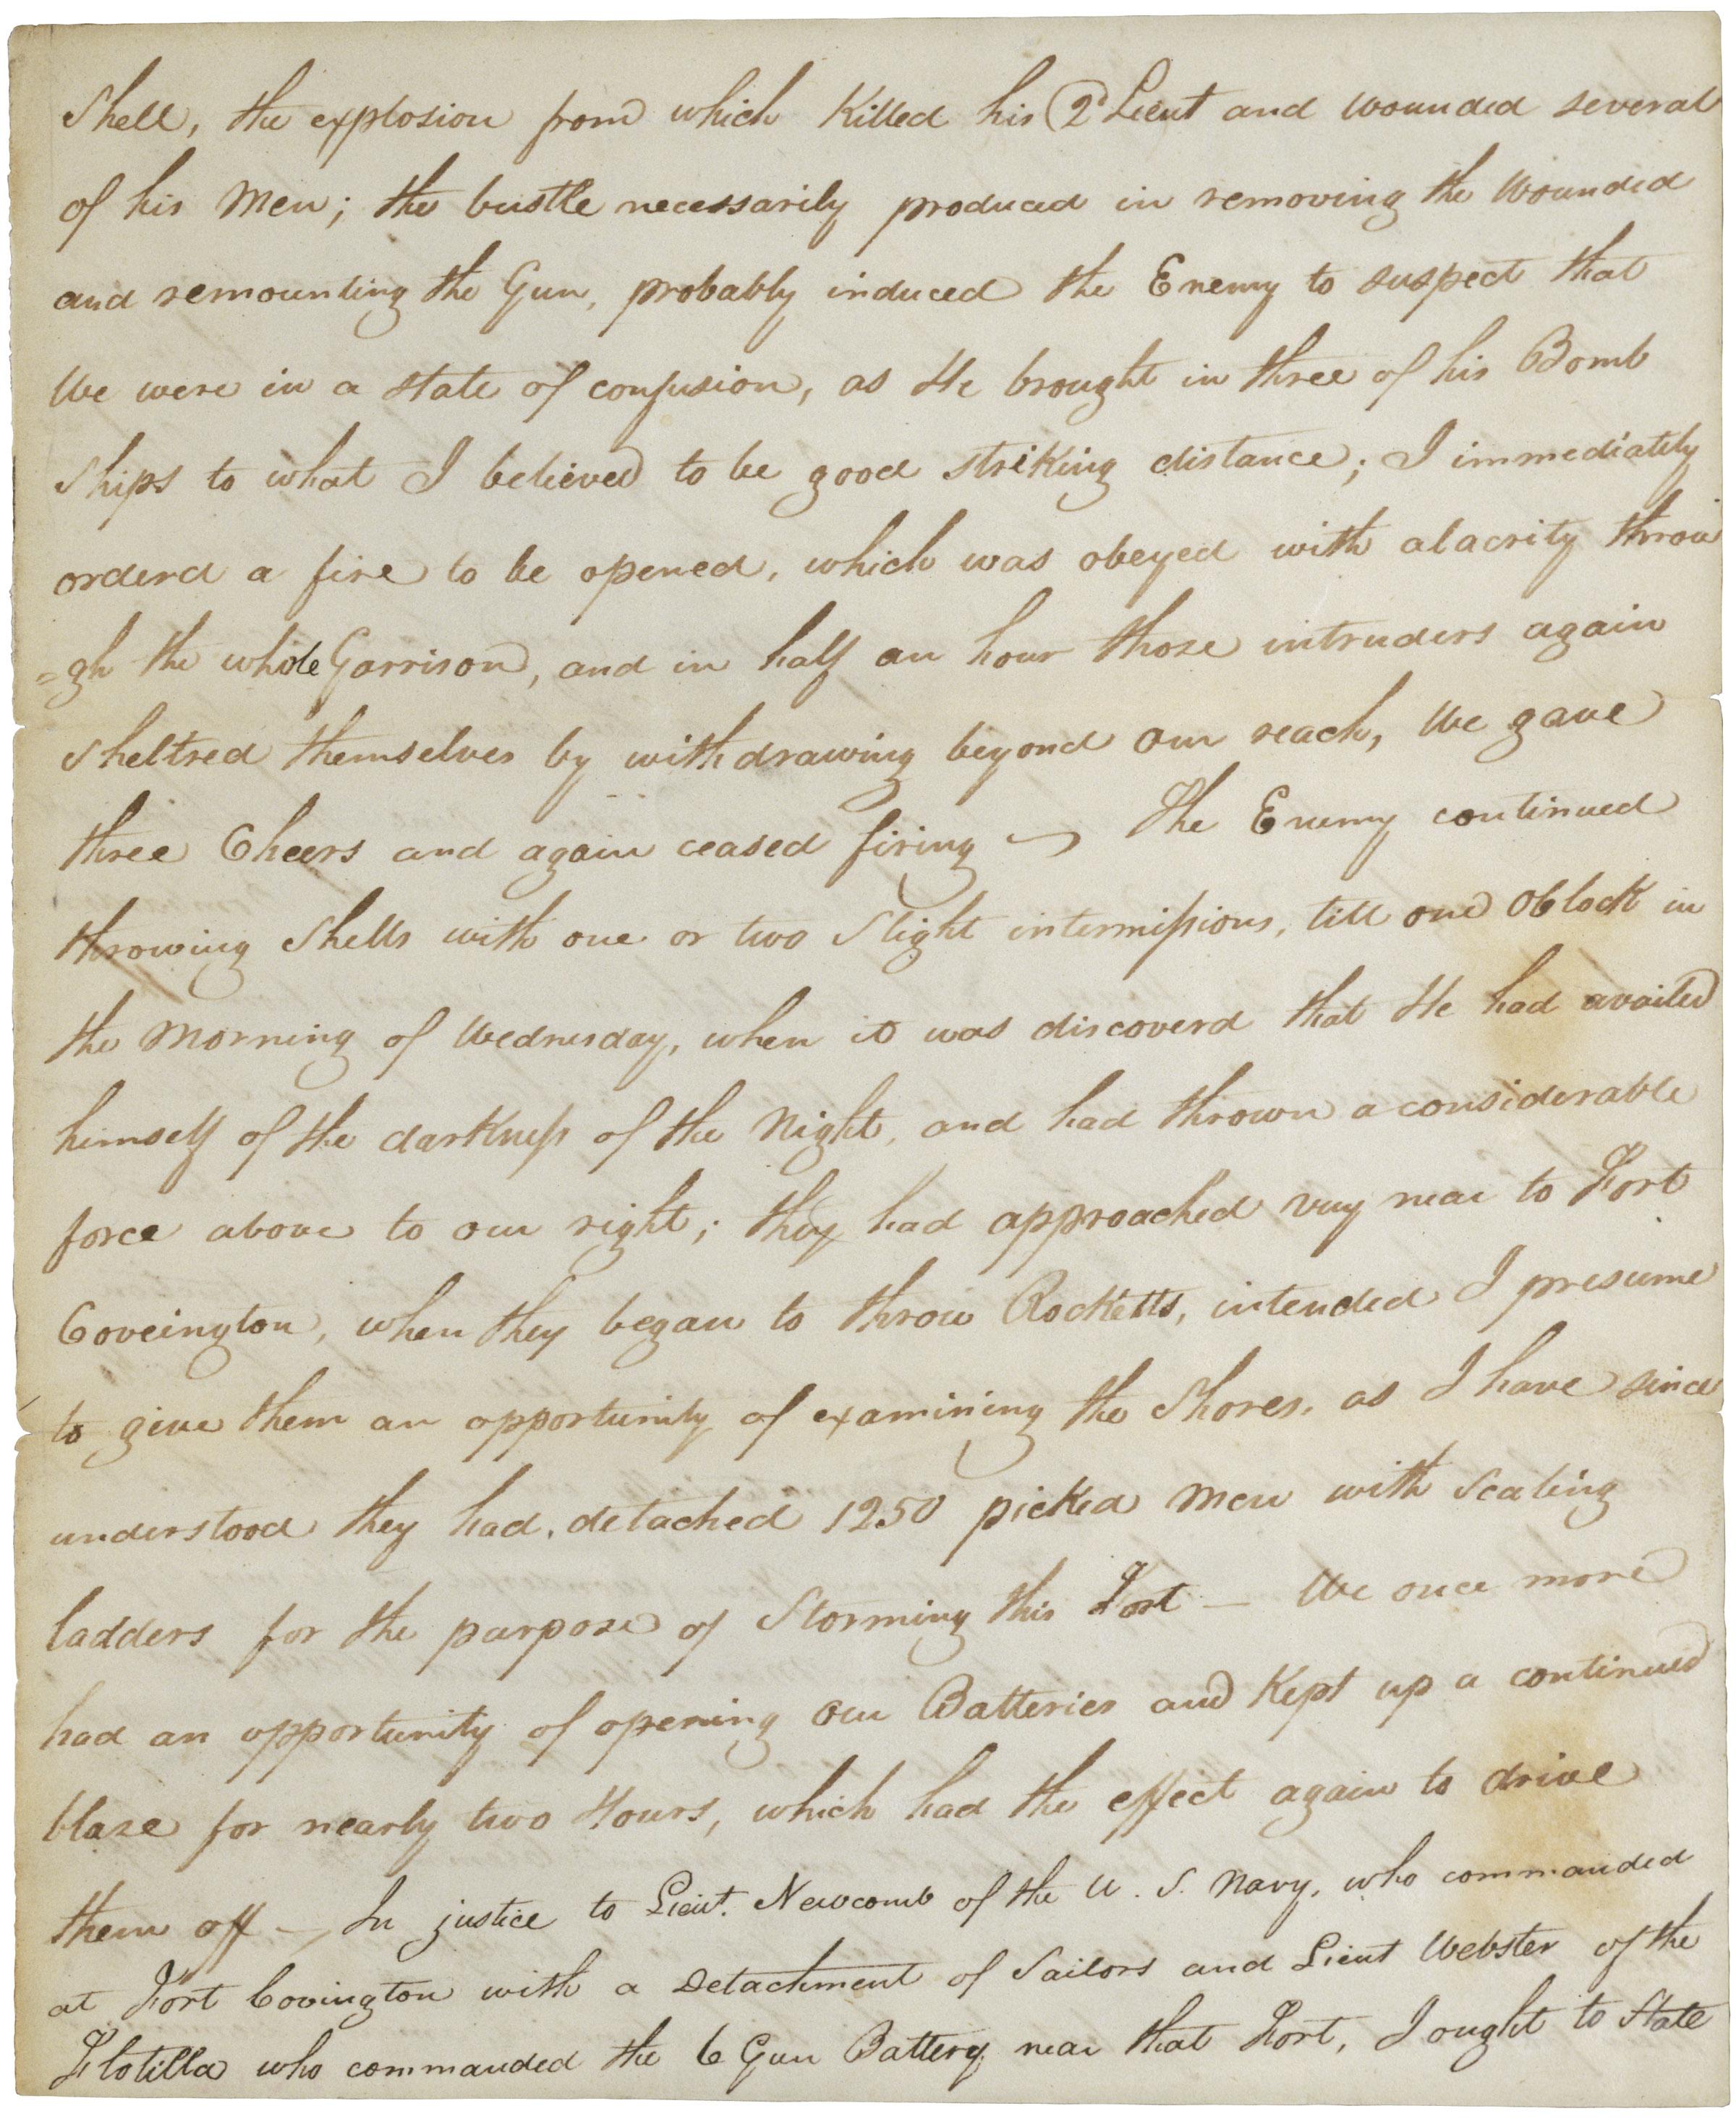 Shell, the explosion from which Killed his 2d Lieut and wounded several
of his Men; the bustle necessarily produced in removing the Wounded
and remounting the Gun, probably induced the Enemy to suspect that
We were in a state of confusion, as He brought in three of his Bomb
Ships to what I believed to be good striking distance; I immediately
orderd a fire to be opened, which was obeyed with alacrity throu
=gh the whole Garrison, and in half an hour those intruders again
Sheltred themselves by withdrawing beyond our reach, We gave
three Cheers and again ceased firing — The Enemy continued
throwing Shells with one or two Slight intermissions, till one OClock in
the Morning of Wednesday, when it was discoverd that He had availed
himself of the darkness of the Night, and had thrown a considerable
force above to our right; they had approached very near to Fort
Coveington, when they began to throw Rocketts, intended I presume
to give them an opportunity of examining the Shores, as I have since
understood they had, detached 1250 picked Men with Scaling
ladders for the purpose of Storming this Fort — We once more
had an opportunity of opening our Batteries and Kept up a continued
blaze for nearly two Hours, which had the effect again to drive
them off — In justice to Lieut. Newcomb of the U. S. Navy, who commanded
at Fort Covington with a Detachment of Sailors and Lieut Webster of the
Flotilla who commanded the 6 Gun Battery near that Fort, I ought to State